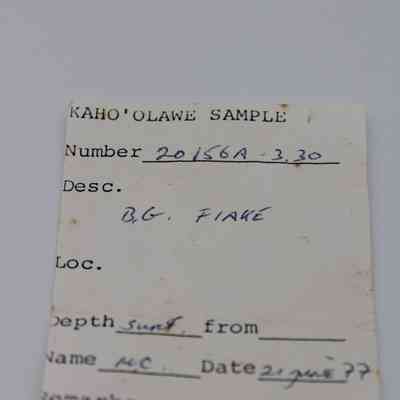 KAHO'OLAWE SAMPLE
Number 20/56A - 3.30
Desc.
B.G. FLAKE
Loc.
Depth surf. from
Name MC. Date 21 June 77
Remarks